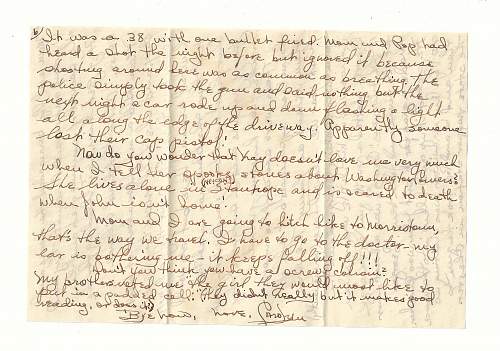 It was a .38 with one bullet fired. Mom and Pop had
heard a shot the night before but ignored it because
shooting around here was as common as breathing. The
police simply took the gun and said nothing but the
next night a car rode up and down flashing a light
all along the edge of the driveway. Apparently someone
lost their cap pistol!
Now do you wonder that Kay doesn't love me very much
when I tell her spooky stories about Washington
She lives alone in and is scared to death
when John isn't home!
Mom and I are going to hitch hike to Morristown,
that's the way we travel. I have to go to the doctor - my
ear is bothering me - it keeps falling off!!!
Don't you think you have a screwy cousin?
My brother voted me the girl they would most like to
put in a padded cell. They didn't really but it makes good
reading, or does it?
Bye now, Love,